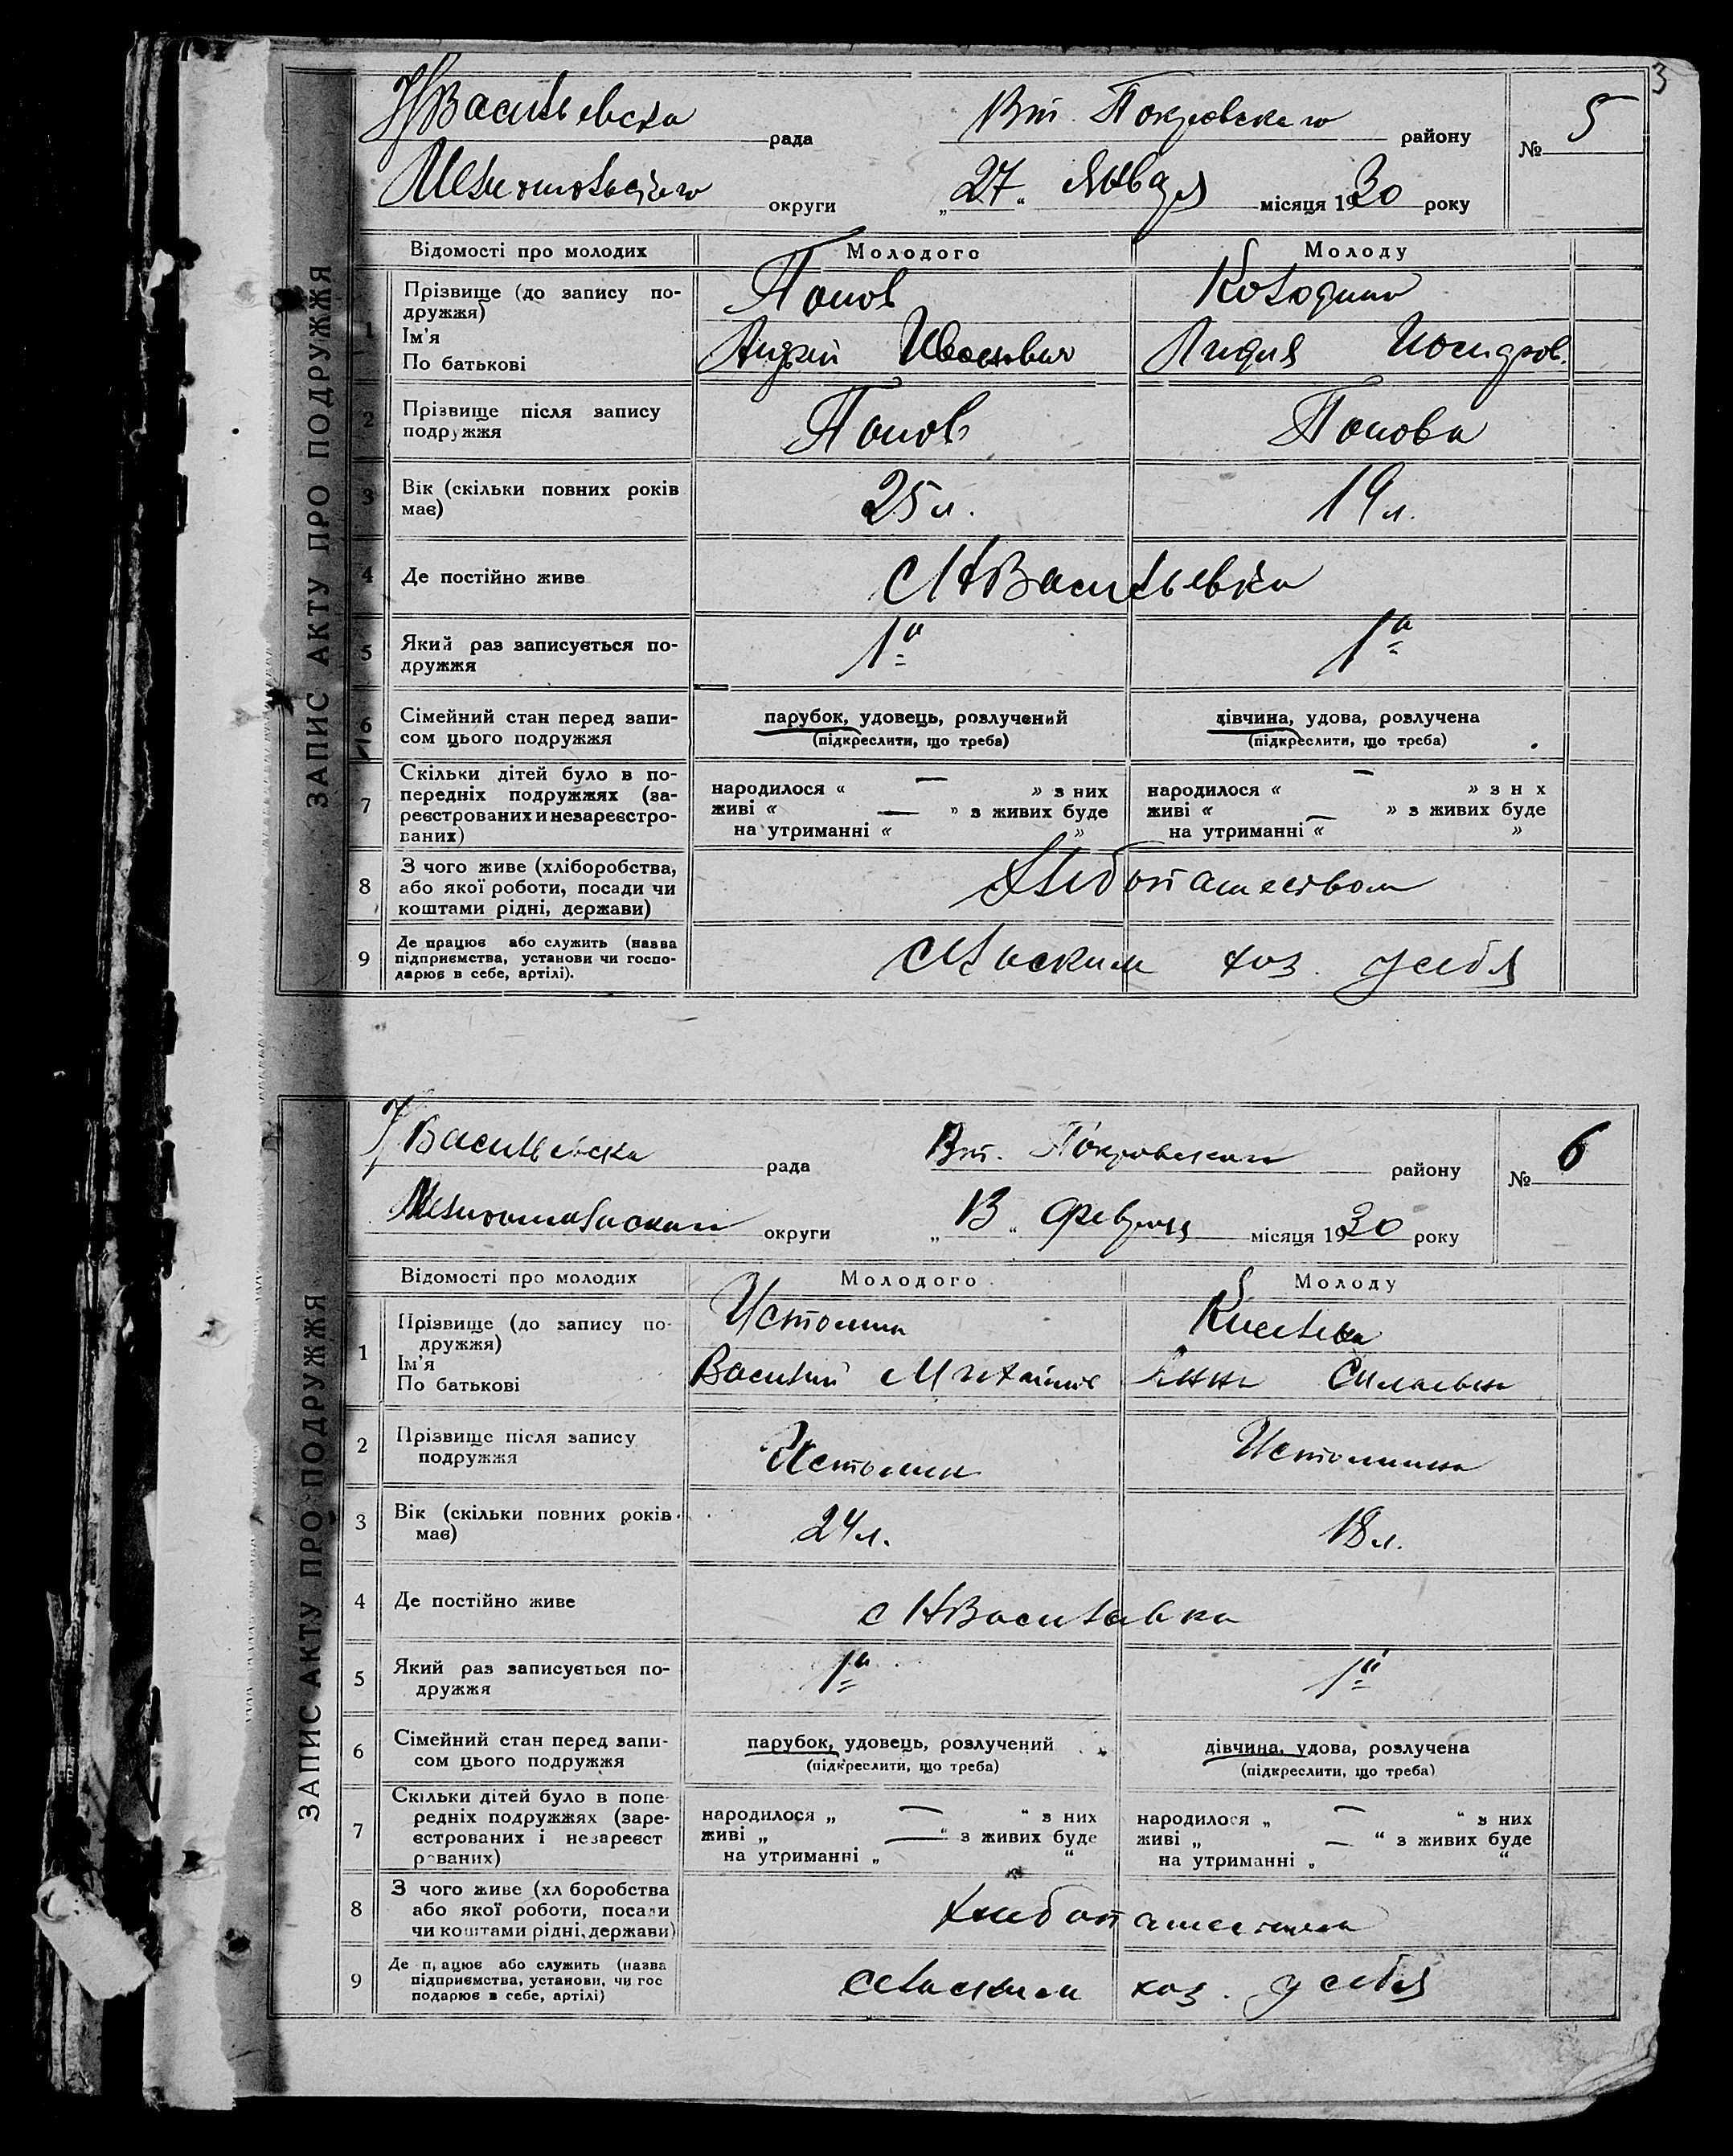 3
НВасильевска рада Вт. Покровского району № 5
Мелитопольского округи „27“ Января місяця 1930 року
ЗАПИС АКТУ ПРО ПОДРУЖЖЯ
Відомості про молодих Молодого Молоду
1 Прізвище (до запису по- Попов
дружжя)
Ім'я Андрей Иванович Лидия
По батькові
2 Прізвище після запису Попов Попова
подружжя
3 Вік (скільки повних років 25 л. 19 л.
має)
4 Де постійно живе с НВасильевка
5 Який раз записується по- 1й 1й
дружжя
6 Сімейний стан перед запи- парубок, удовець, розлучений дівчина, удова, розлучена
сом цього подружжя (підкреслити, що треба) (підкреслити, що треба)
7 Скільки дітей було в по-
передніх подружжях (за- народилося « — » з них народилося « — » з н х
реєстрованих и незареєстро- живі « — » з живих буде живі « — » з живих буде
ваних) на утриманні « » на утриманні « »
8 З чого живе (хліборобства, Хлебопашеством
або якої роботи, посади чи
коштами рідні, держави)
9 Де працює або служить (назва сельским хоз. у себя
підприємства, установи чи госпо-
дарює в себе, артілі).
НВасильевска рада Вт. Покровского району № 6
Мелитопольского округи „13“ Февраля місяця 1930 року
ЗАПИС АКТУ ПРО ПОДРУЖЖЯ
Відомості про молодих Молодого Молоду
1 Прізвище (до запису по- Истомин
дружжя)
Ім'я Василий Михайлов Анна
По батькові
2 Прізвище після запису Истомин Истомина
подружжя
3 Вік (скільки повних років 24 л. 18 л.
має)
4 Де постійно живе с НВасильевка
5 Який раз записується по- 1й 1й
дружжя
6 Сімейний стан перед запи- парубок, удовець, розлучений дівчина, удова, розлучена
сом цього подружжя (підкреслити, що треба) (підкреслити, що треба)
7 Скільки дітей було в попе-
редніх подружжях (заре- народилося „ — “ з них народилося „ — “ з них
єстрованих і незареєст живі „ — “ з живих буде живі „ — “ з живих буде
рованих) на утриманні „ “ на утриманні „ “
8 З чого живе (хл боробства хлебопашеством
або якої роботи, посади
чи коштами рідні, держави)
9 Де працює або служить (назва сельским хоз. у себя
підприємства, установи, чи гос
подарює в себе, артілі)